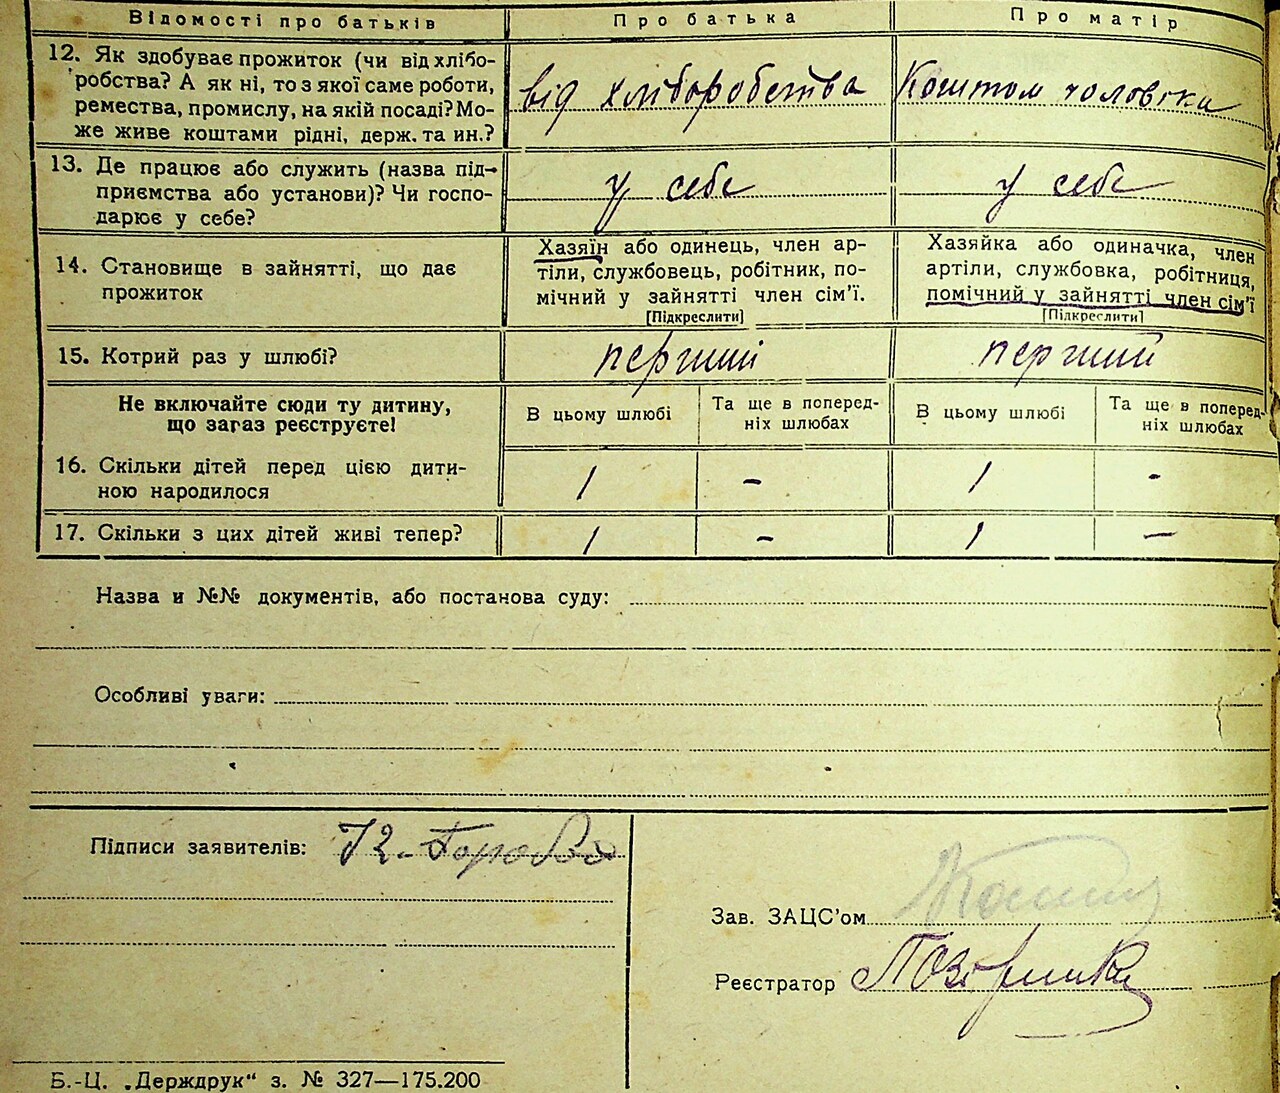 Відомості про батьків Про батька Про матір
12. Як здобуває прожиток (чи від хлібо-
робства? А як ні, то з якої саме роботи,
ремества, промислу, на якій посаді? Мо-
же живе коштами рідні, держ. та ин.?
від хліборобства Коштом чоловіка
13. Де працює або служить (назва під-
приємства або установи)? Чи госпо-
дарює у себе?
у себе у себе
14. Становище в зайнятті, що дає
прожиток
Хазяїн або одинець, член ар-
тіли, службовець, робітник, по-
мічний у зайнятті член сім'ї.
[Підкреслити]
Хазяйка або одиначка, член
артіли, службовка, робітниця,
помічний у зайнятті член сім'ї
[Підкреслити]
15. Котрий раз у шлюбі? перший перший
Не включайте сюди ту дитину,
що зараз реєструєте!
В цьому шлюбі
Та ще в поперед-
ніх шлюбах
В цьому шлюбі
Та ще в поперед-
ніх шлюбах
16. Скільки дітей перед цією дити-
ною народилося
1 - 1 -
17. Скільки з цих дітей живі тепер? 1 - 1 -
Назва и №№ документів, або постанова суду:
Особливі уваги:
Підписи заявителів:
Зав. ЗАЦС'ом
Реєстратор
Б.-Ц. „Держдрук" з. № 327—175.200